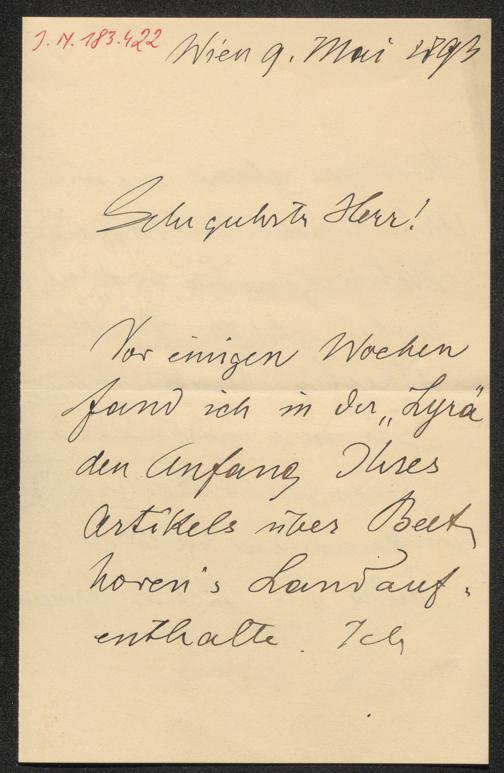 J. N. 183.422
Wien 9. Mai 1893
Sehr geehrter Herr!
Vor einigen Wochen
fand ich in der „Lyra"
den Anfang Ihres
Artikels über Beet
hoven's Landauf-
enthalte. Ich